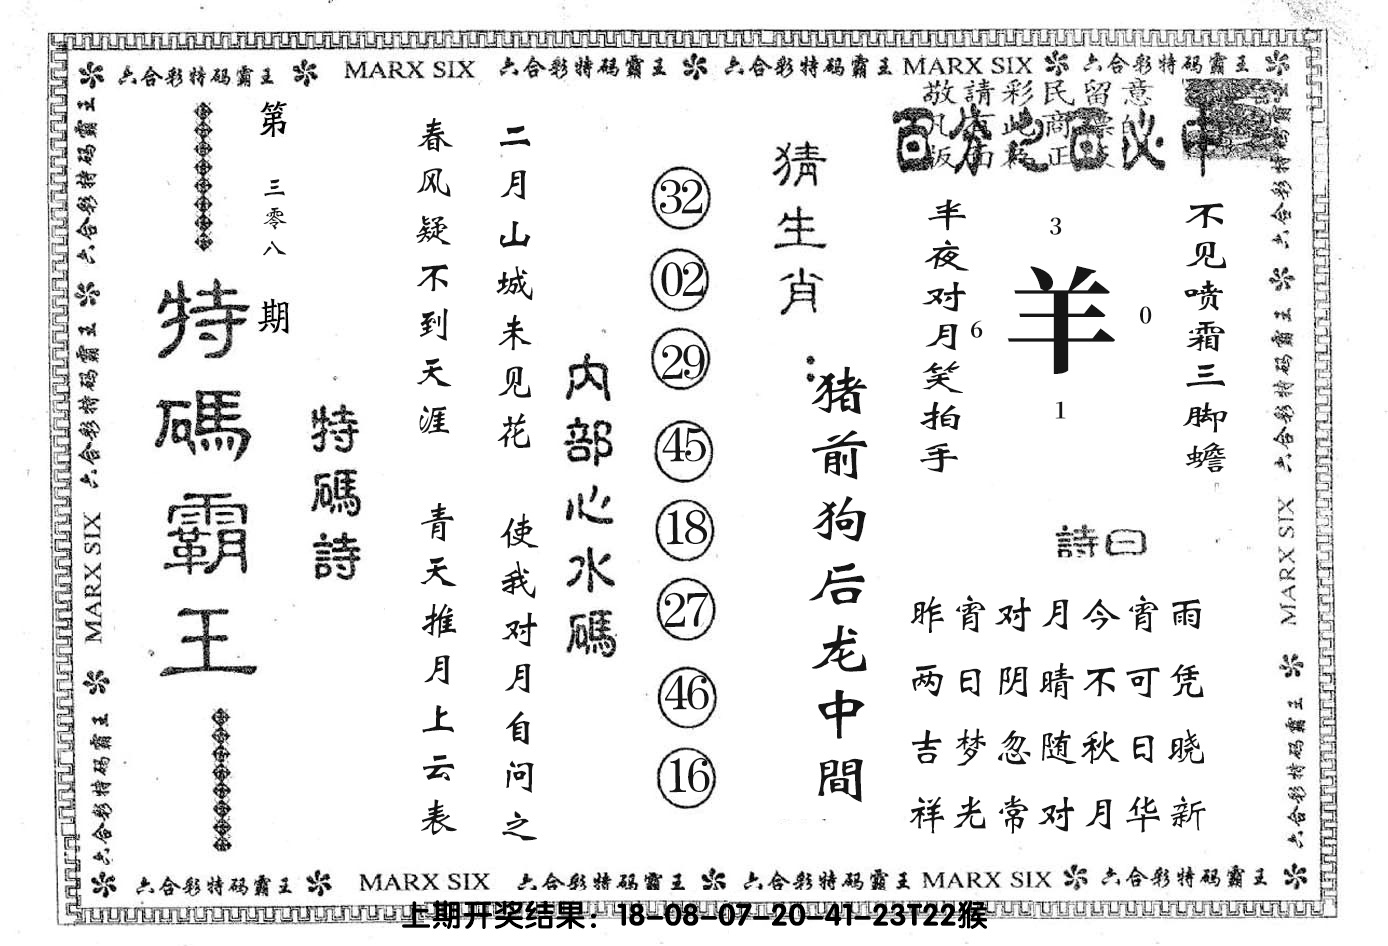 六合彩特码霸王 MARX SIX 六合彩特码霸王 六合彩特码霸王 MARX SIX 六合彩特码霸王
六合彩特码霸王 六合彩特码霸王 MARX SIX 六合彩特码霸王
第三零八期
特碼霸王
特碼詩
春风疑不到天涯 青天推月上云表
二月山城未见花 使我对月自问之
内部心水碼
32
02
29
45
18
27
46
16
猜生肖:
猪前狗后龙中間
敬請彩民留意
百分之百必中
半夜对月笑拍手
3
6
羊
0
1
不见喷霜三脚蟾
詩曰
昨宵对月今宵雨
两日阴晴不可凭
吉梦忽随秋日晓
祥光常对月华新
六合彩特码霸王 六合彩特码霸王 MARX SIX 六合彩特码霸王
六合彩特码霸王 MARX SIX 六合彩特码霸王 六合彩特码霸王 MARX SIX 六合彩特码霸王
上期开奖结果：18-08-07-20-41-23T22猴